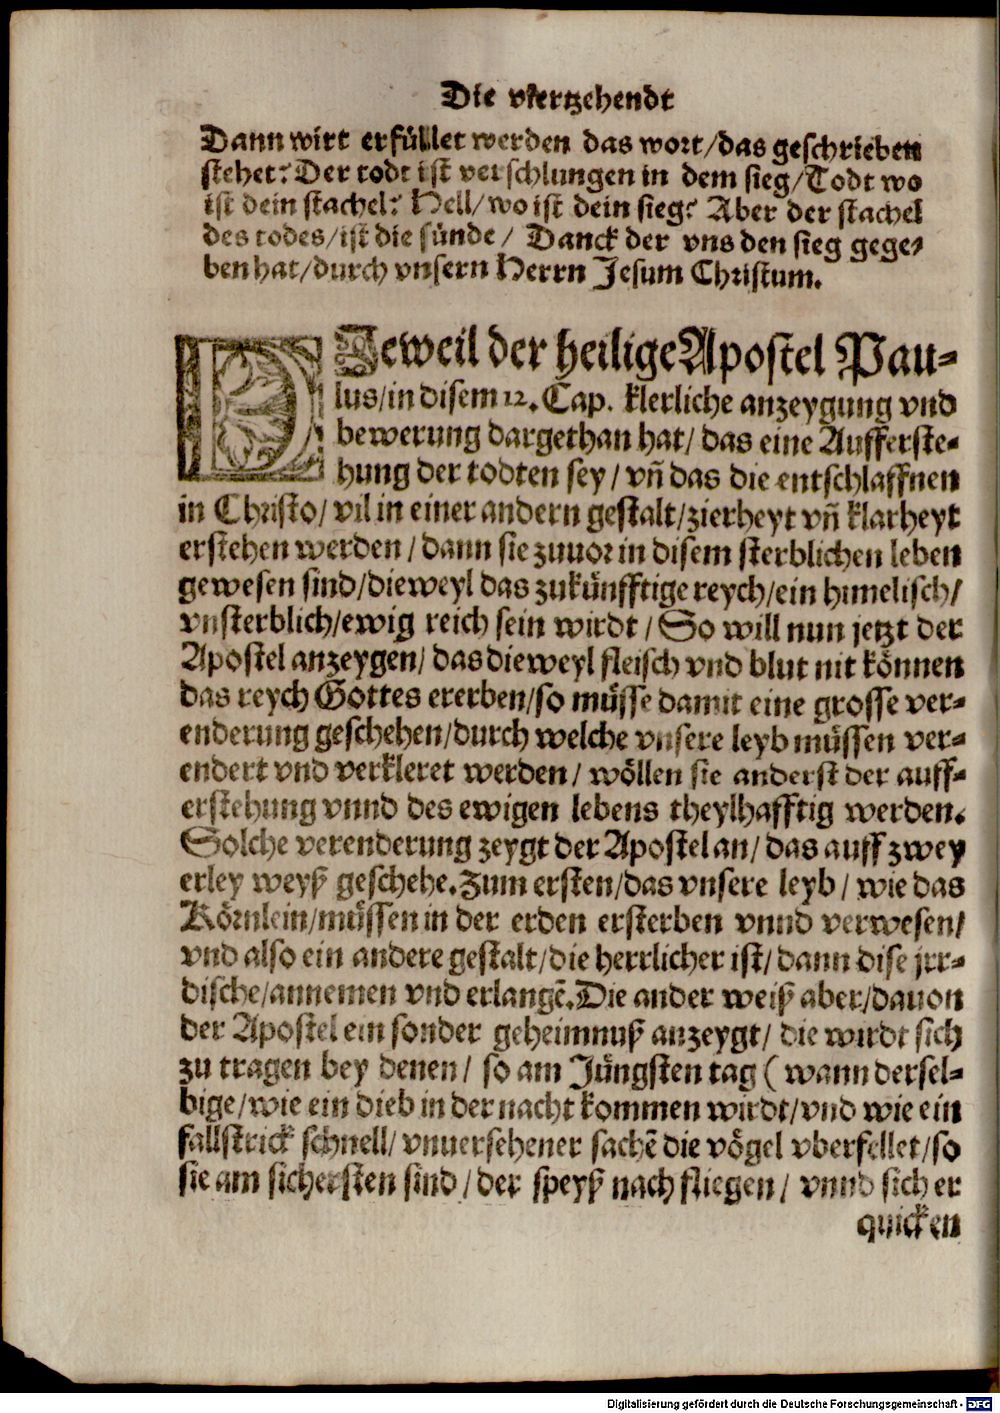 Die viertzehendt
Dann wirt erfüllet werden das wort/das geschrieben
stehet: Der todt ist verschlungen in dem sieg/Todt wo
ist dein stachel? Hell/wo ist dein sieg? Aber der stachel
des todes/ist die sünde/ Danck der vns den sieg gege-
ben hat/durch vnsern Herrn Jesum Christum.
DIeweil der heilige Apostel Pau-
lus/in disem 12. Cap. klerliche anzeygung vnd
bewerung dargethan hat/ das eine Aufferste-
hung der todten sey/ vñ das die entschlaffnen
in Christo/ vil in einer andern gestalt/zierheyt vñ klarheyt
erstehen werden/dann sie zuuor in disem sterblichen leben
gewesen sind/dieweyl das zukünfftige reych/ein himelisch/
vnsterblich/ewig reich sein wirdt/ So will nun jetzt der
Apostel anzeygen/ das dieweyl fleisch vnd blut nit können
das reych Gottes ererben/so müsse damit eine grosse ver-
enderung geschehen/durch welche vnsere leyb müssen ver-
endert vnd verkleret werden/ wöllen sie anderst der auff-
erstehung vnnd des ewigen lebens theylhafftig werden.
Solche verenderung zeygt der Apostel an/ das auff zwey
erley weyß geschehe. Zum ersten/das vnsere leyb/ wie das
Körnlein/müssen in der erden ersterben vnnd verwesen/
vnd also ein andere gestalt/die herrlicher ist/ dann dise jrr-
dische/annemen vnd erlangẽ. Die ander weiß aber/dauon
der Apostel ein sonder geheimnuß anzeygt/ die wirdt sich
zu tragen bey denen/ so am Jüngsten tag ( wann dersel-
bige/wie ein dieb in der nacht kommen wirdt/vnd wie ein
fallstrick schnell/ vnuersehener sachẽ die vögel vberfellet/so
sie am sichersten sind/der speyß nach fliegen/ vnnd sich er
quicken
Digitalisierung gefördert durch die Deutsche Forschungsgemeinschaft - DFG